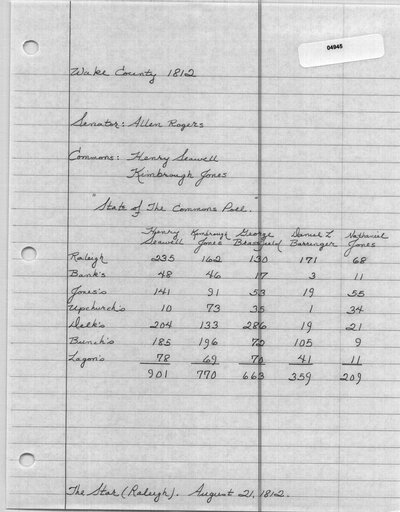 04945
Wake County 1812
Senator: Allen Rogers
Commons: Henry Seawell
Kimbrough Jones
"State of The Commons Poll."
Henry Kimbrough George Daniel L Nathaniel
Seawell Jones Brassfield Barringer Jones
Raleigh 235 162 130 171 68
Bank's 48 46 17 3 11
Jones's 141 91 53 19 55
Upchurch's 10 73 35 1 34
Delk's 204 133 286 19 21
Bunch's 185 196 72 105 9
Lagon's 78 69 70 41 11
901 770 663 359 209
The Star (Raleigh). August 21, 1812.